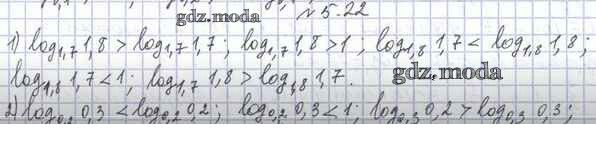 gdz.moda
№ 5.22
1) log₁,₇ 1,8 > log₁,₇ 1,7; log₁,₇ 1,8 > 1; log₁,₈ 1,7 < log₁,₈ 1,8;
log₁,₈ 1,7 < 1; log₁,₇ 1,8 > log₁,₈ 1,7.
gdz.moda
2) log₀,₂ 0,3 < log₀,₂ 0,2; log₀,₂ 0,3 < 1; log₀,₃ 0,2 > log₀,₃ 0,3;